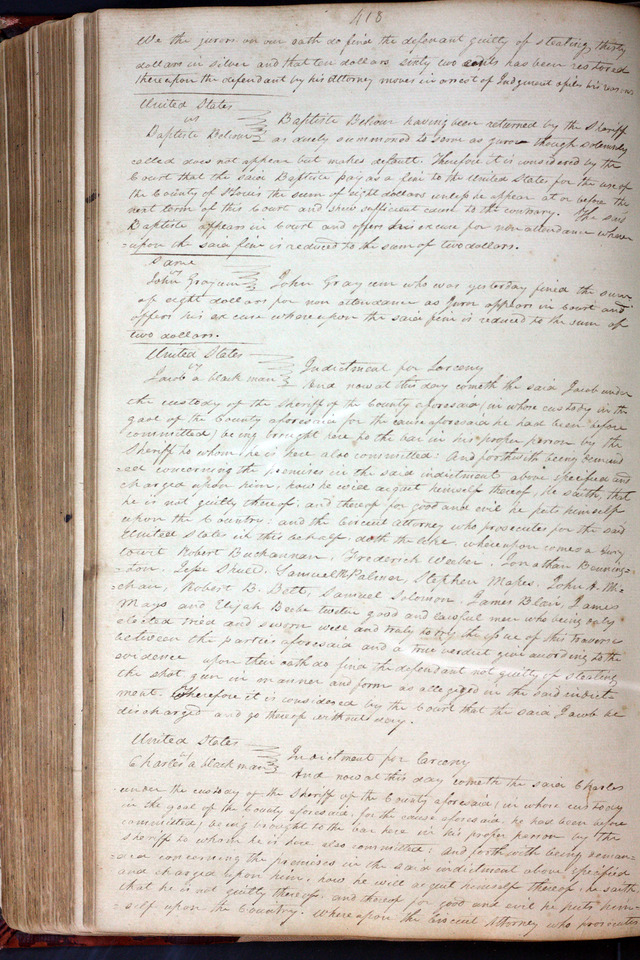 418
We the jurors on our oath do find the defendant guilty of stealing thirty
dollars in silver and that ten dollars sixty two cents has been restored
thereupon the defendant by his Attorney moves in arrest of Judgment & files his reasons
United States
vs
Baptiste Belour
Baptiste Belour having been returned by the Sheriff
as duely summoned to serve as juror though solemnly
called does not appear but makes default. Therefore it is considered by the
Court that the said Baptiste pay as a fine to the United States for the use of
the County of St Louis the sum of eight dollars unless he appear at or before the
next term of this Court and shew sufficient cause to the contrary. The said
Baptiste appears in Court and offers his excuse for non attendance where=
=upon the said fine is reduced to the sum of two dollars.
Same
vs
John Graycum
John Graycum who was yesterday fined the sum
of eight dollars for non attendance as Juror appears in Court and
offers his excuse whereupon the said fine is reduced to the sum of
two dollars.
United States
vs
Jacob a black man
Indictment for Larceny
And now at this day cometh the said Jacob under
the custody of the Sheriff of the County aforesaid (in whose custody in the
gaol of the County aforesaid for the cause aforesaid he had been before
committed) being brought here to the bar in his proper person by the
Sheriff to whom he is here also committed: And forthwith being demand
=ed concerning the premises in the said indictment above specified and
charged upon him, how he will acquit himself thereof, he saith, that
he is not guilty thereof, and thereof for good and evil he puts himself
upon the Country: and the Circuit Attorney who prosecutes for the said
United States in this behalf doth the like. whereupon comes a jury
to wit Robert Buchannan, Frederick Weiber, Jonathan Benning-
=ton, Samuel Palmer, Stephen Mapes, John
Robert B. Samuel Solomon, James Blair, James
Mays and Elijah Beebe twelve good and lawful men who being duly
elected tried and sworn well and truly to try the issue of this traverse
between the parties aforesaid and a true verdict give according to the
evidence upon their oath do find the defendant not guilty of stealing
the shot gun in manner and form as alledged in the said indict=
ment. Wherefore it is considered by the Court that the said Jacob be
discharged and go thereof without day.
United States
vs
Charles a black man
Indictment for Larceny
And now at this day cometh the said Charles
under the custody of the Sheriff of the County aforesaid (in whose custody
in the gaol of the County aforesaid, for the cause aforesaid, he has been before
committed) being brought to the bar here in his proper person by the
Sheriff to whom he is here also committed: And forthwith being deman=
=ded concerning the premises in the said indictment above specified
and charged upon him, how he will acquit himself thereof, he saith
that he is not guilty thereof, and thereof for good and evil he puts him=
=self upon the Country. Whereupon the Circuit Attorney who prosecutes